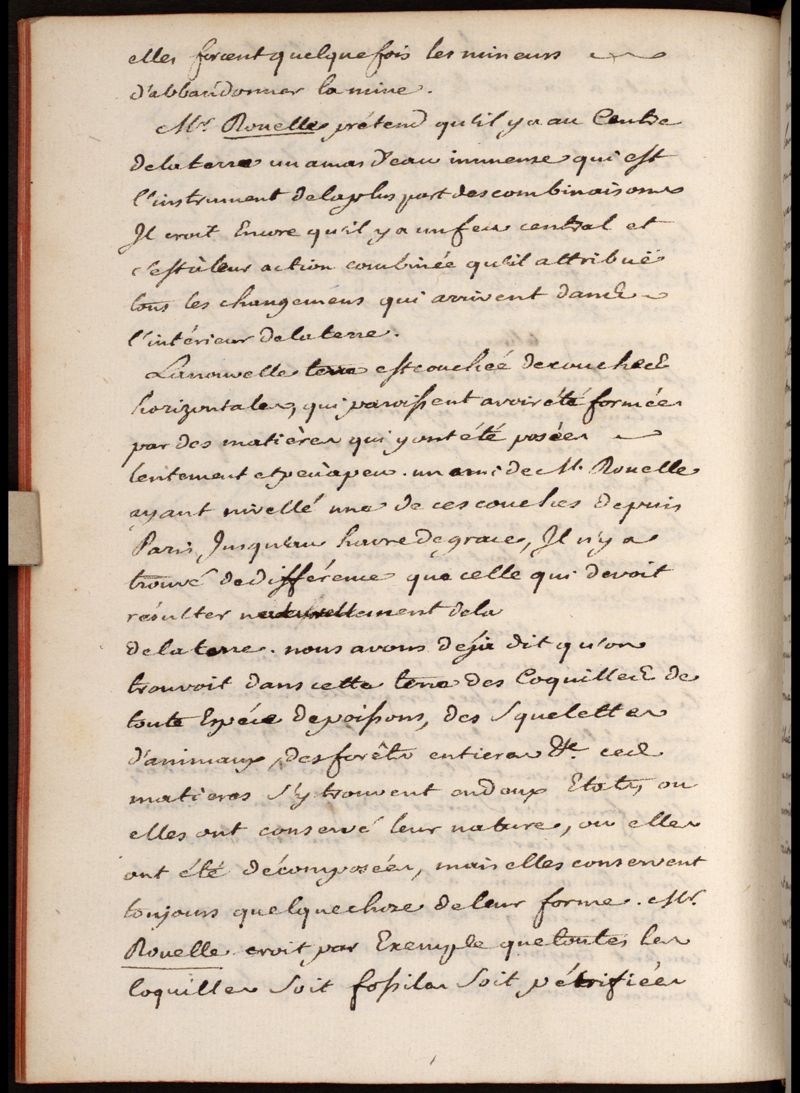 elles forcent quelquefois les mineurs
d'abbandonner la mine.
Mr. Rouelle prétend qu'il y a au Centre
de la terre un amas d'eau immense qui est
l'instrument de la plus part des combinaisons
Il croit Encore qu'il y a un feu central et
c'est à leur action combinée qu'il attribuë
tous les changemens qui arrivent dans
l'intérieur de la terre.
La nouvelle terre est couchée de couches
horizontales, qui paroissent avoir été formées
par des matières qui y ont été posées
lentement et peu à peu. un ami de Mr. Rouelle
ayant nivellé une de ces couches depuis
Paris Jusqu'au havre de grace, Il n'y a
trouvé de différence que celle qui devoit
résulter naturellement de la
de la terre. nous avons déja dit qu'on
trouvoit dans cette terre des Coquilles de
toute Espéce de poissons, des Squelettes
d'animaux, des forêts entieres &c. ces
matieres s'y trouvent en deux Etats, ou
elles ont conservé leur nature, ou elles
ont été décomposées, mais elles conservent
toujours quelque chose de leur forme. Mr.
Rouelle croit par Exemple que toutes les
Coquilles Soit fossiles Soit pétrifiées